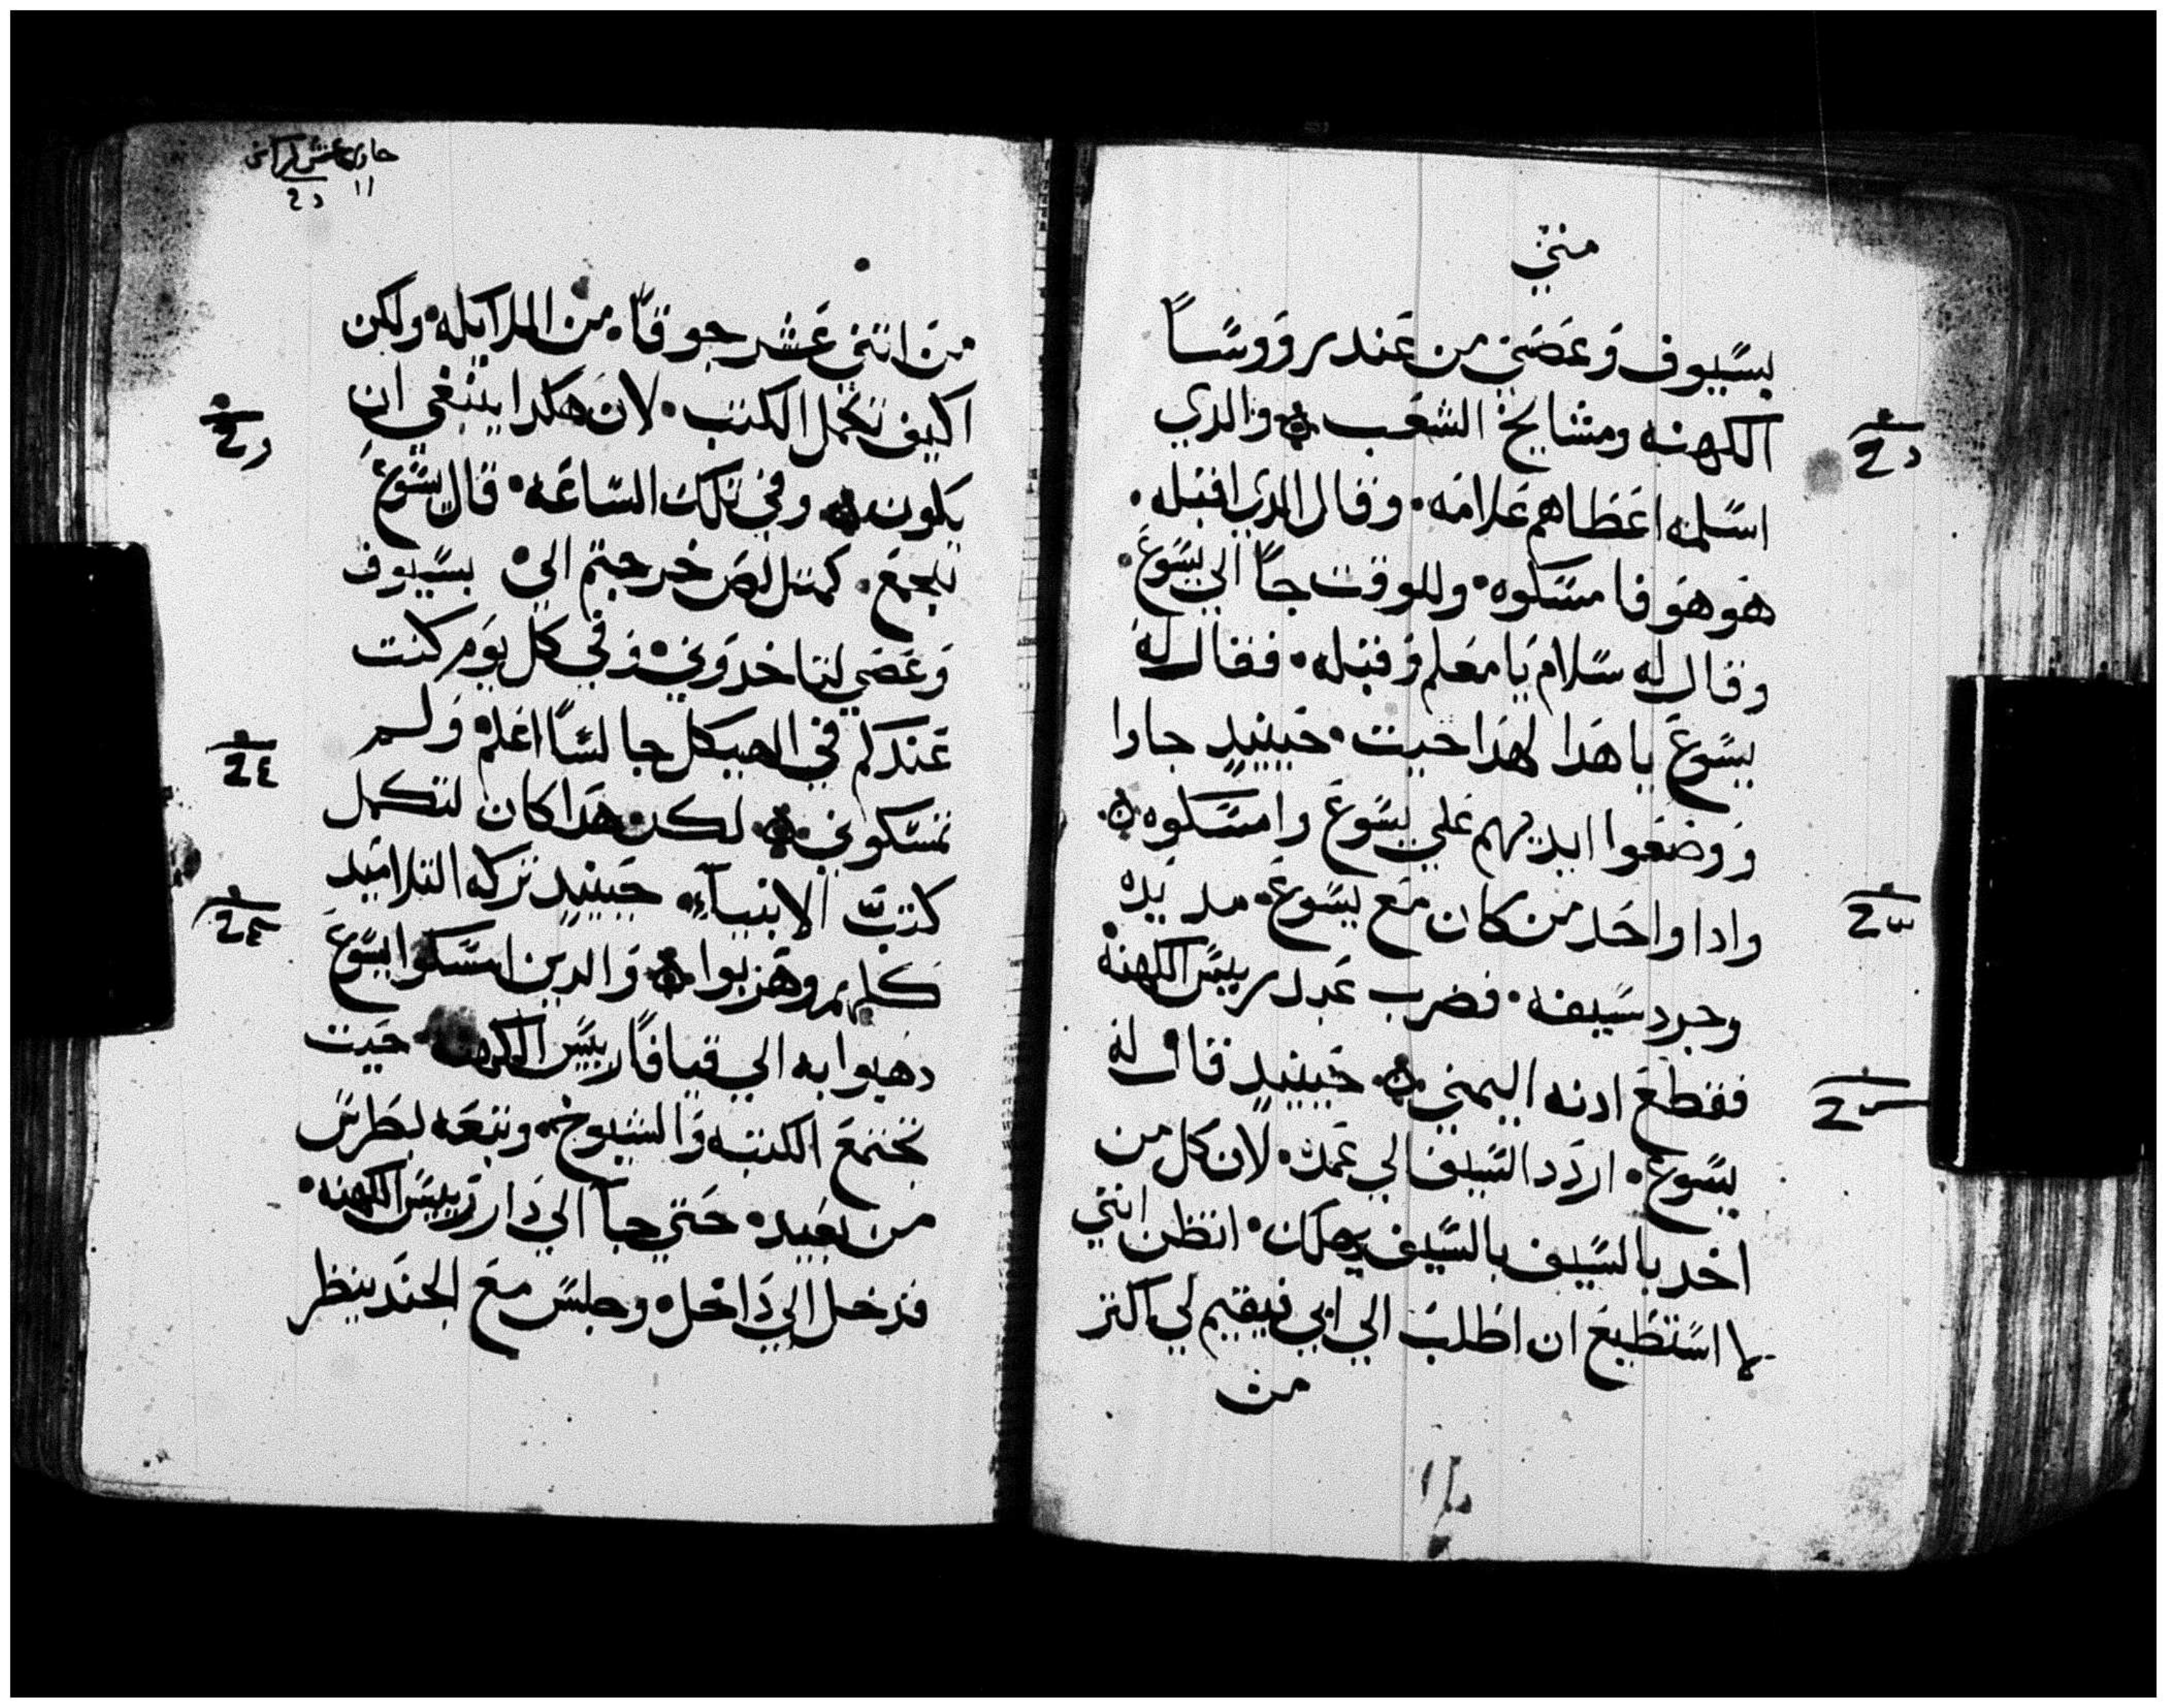 متي
بسيوف وعصي من عند رووسا
الكهنه ومشايخ الشعب والدي
اسلمه اعطاهم علامه. وقال الدي اقبله.
هو هو فامسكوه. وللوقت جا الي يسوع.
وقال له سلام يا معلم وقبله. فقال له
يسوع يا هدا لهدا جيت. حينيد جاوا
ووضعوا ايديهم علي يسوع وامسكوه.
وادا واحد من كان مع يسوع. مد يده
وجرد سيفه. فضرب عبد رييس الكهنه
فقطع ادنه اليمني. حينيد قال له
يسوع. اردد السيف الي غمده. لان كل من
اخد بالسيف بالسيف يهلك. اتظن انني
لا استطيع ان اطلب الي ابي فيقيم لي اكتر
من
حادي عشر كراس
١١
من اتني عشر جوقا. من الملايكه. ولكن
اكيف تكمل الكتب. لان هكدا ينبغي ان
يكون وفي تلك الساعه. قال يسوع
للجمع. كمتل لص خرجتم الي بسيوف
وعصي لتاخدوني وفي كل يوم كنت
عندكم في الهيكل جالسا اعلم ولم
تمسكوني. لكن هدا كان لتكمل
كتب الانبياء. حينيد تركه التلاميد
كلهم وهربوا والدين امسكوا يسوع
دهبوا به الي قيافا رييس الكهنه حيت
تجتمع الكتبه والشيوخ. وتبعه بطرس
من بعيد. حتي جا الي دار رييس الكهنه.
فدخل الي داخل وجلس مع الجند ينظر